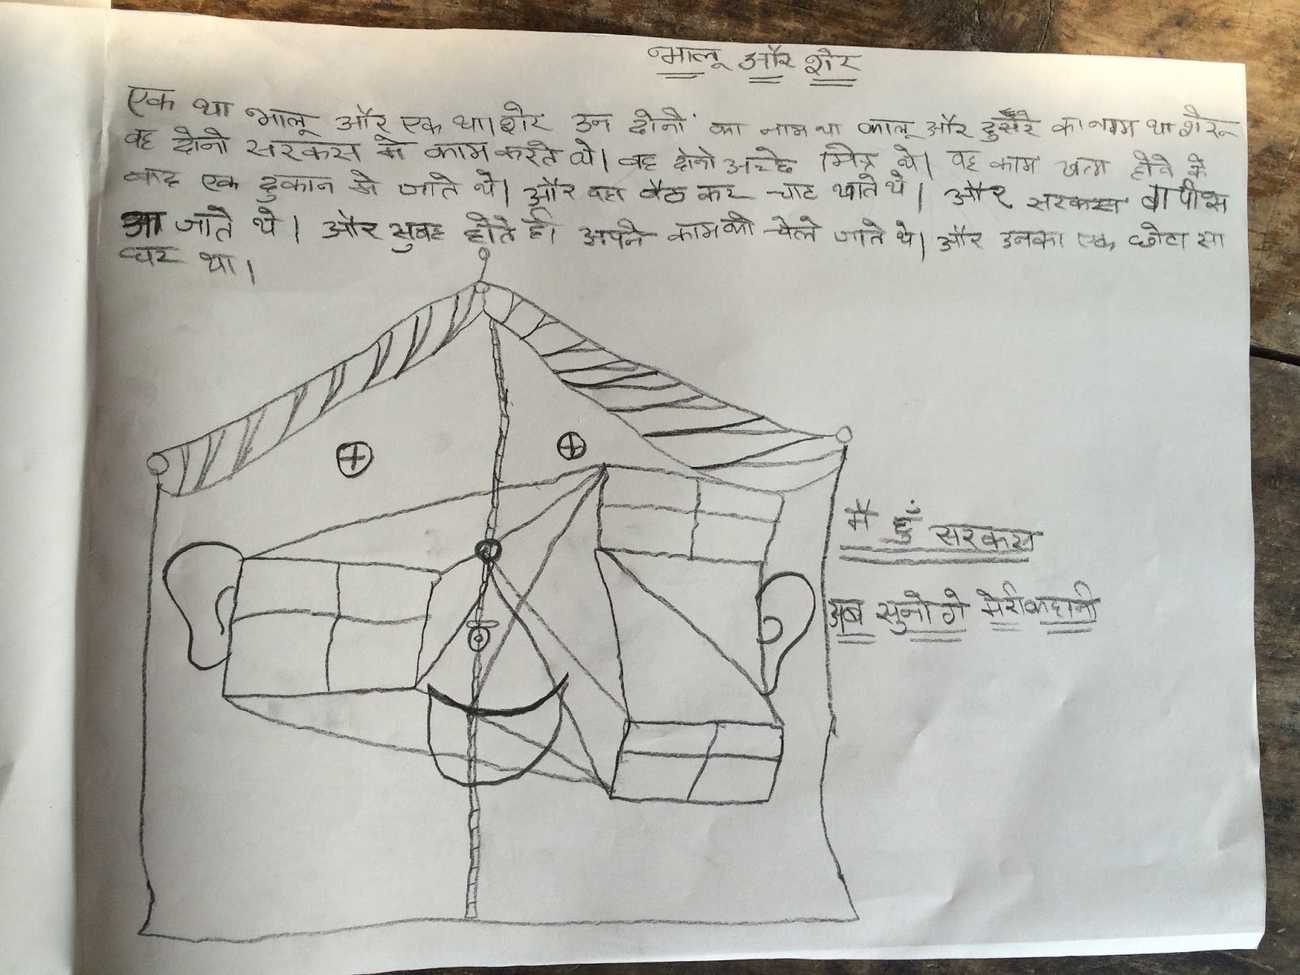 भालू और शेर
एक था भालू और एक था। शेर उन दोनों का नाम था कालू और दुसरे का नाम था शेरू
वह दोनो सरकस मे काम करते थे। वह दोनो अच्छे मित्र थे। वह काम खत्म होने के
बाद एक दुकान मे जाते थे। और वहा बैठ कर चाट खाते थे। और सरकस वापीस
आ जाते थे। और सुबह होते ही अपने काम को चले जाते थे। और उनका एक छोटा सा
घर था।
मैं हुं सरकस
अब सुनो गे मेरी कहानी